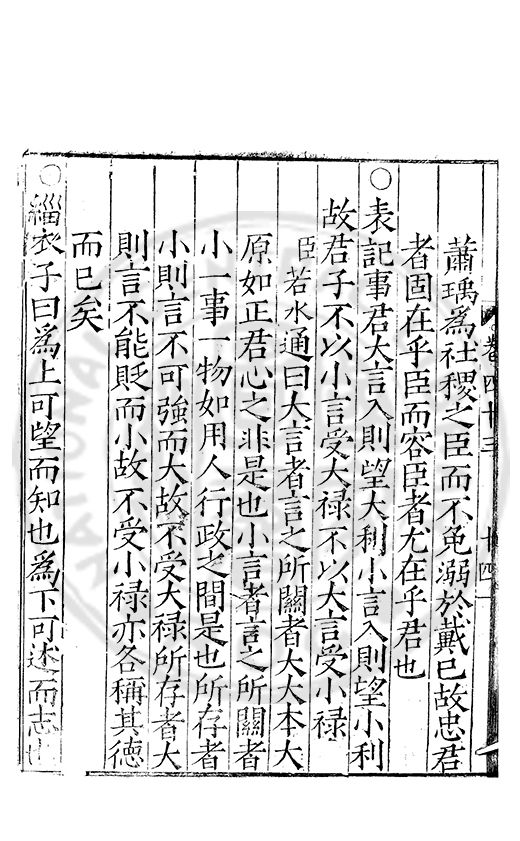 卷四十三 十四
蕭瑀爲社稷之臣而不免溺於戴已故忠君
者固在乎臣而容臣者尤在乎君也
○表記事君大言入則望大利小言入則望小利
故君子不以小言受大祿不以大言受小祿
臣若水通曰大言者言之所關者大大本大
原如正君心之非是也小言者言之所關者
小一事一物如用人行政之間是也所存者
小則言不可強而大故不受大祿所存者大
則言不能貶而小故不受小祿亦各稱其德
而已矣
○緇衣子曰爲上可望而知也爲下可述而志也